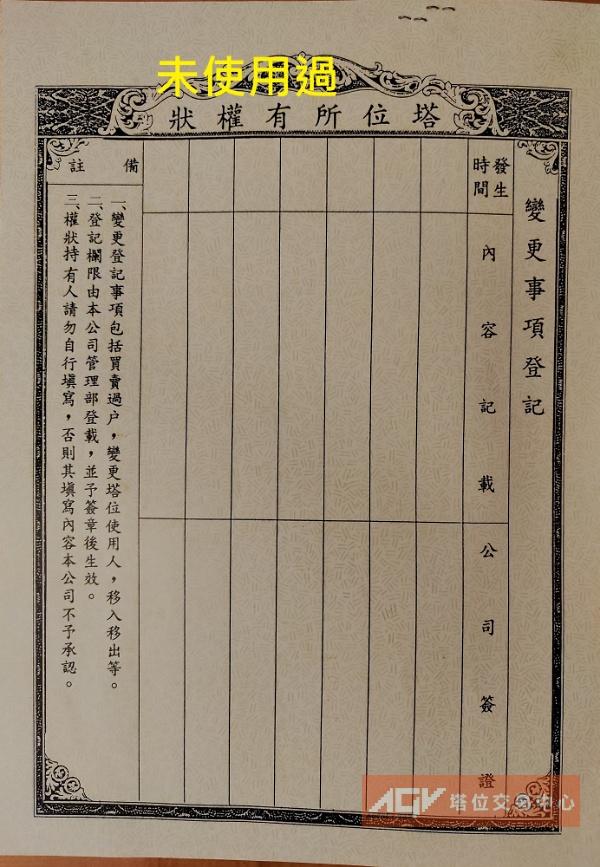 未使用過
塔位所有權狀
變更事項登記
發生時間
內容記載
公司簽證
備註
一、變更登記事項包括買賣過户，變更塔位使用人，移入移出等。
二、登記欄限由本公司管理部登載，並予簽章後生效。
三、權狀持有人請勿自行填寫，否則其填寫內容本公司不予承認。
AGV 塔位交易中心